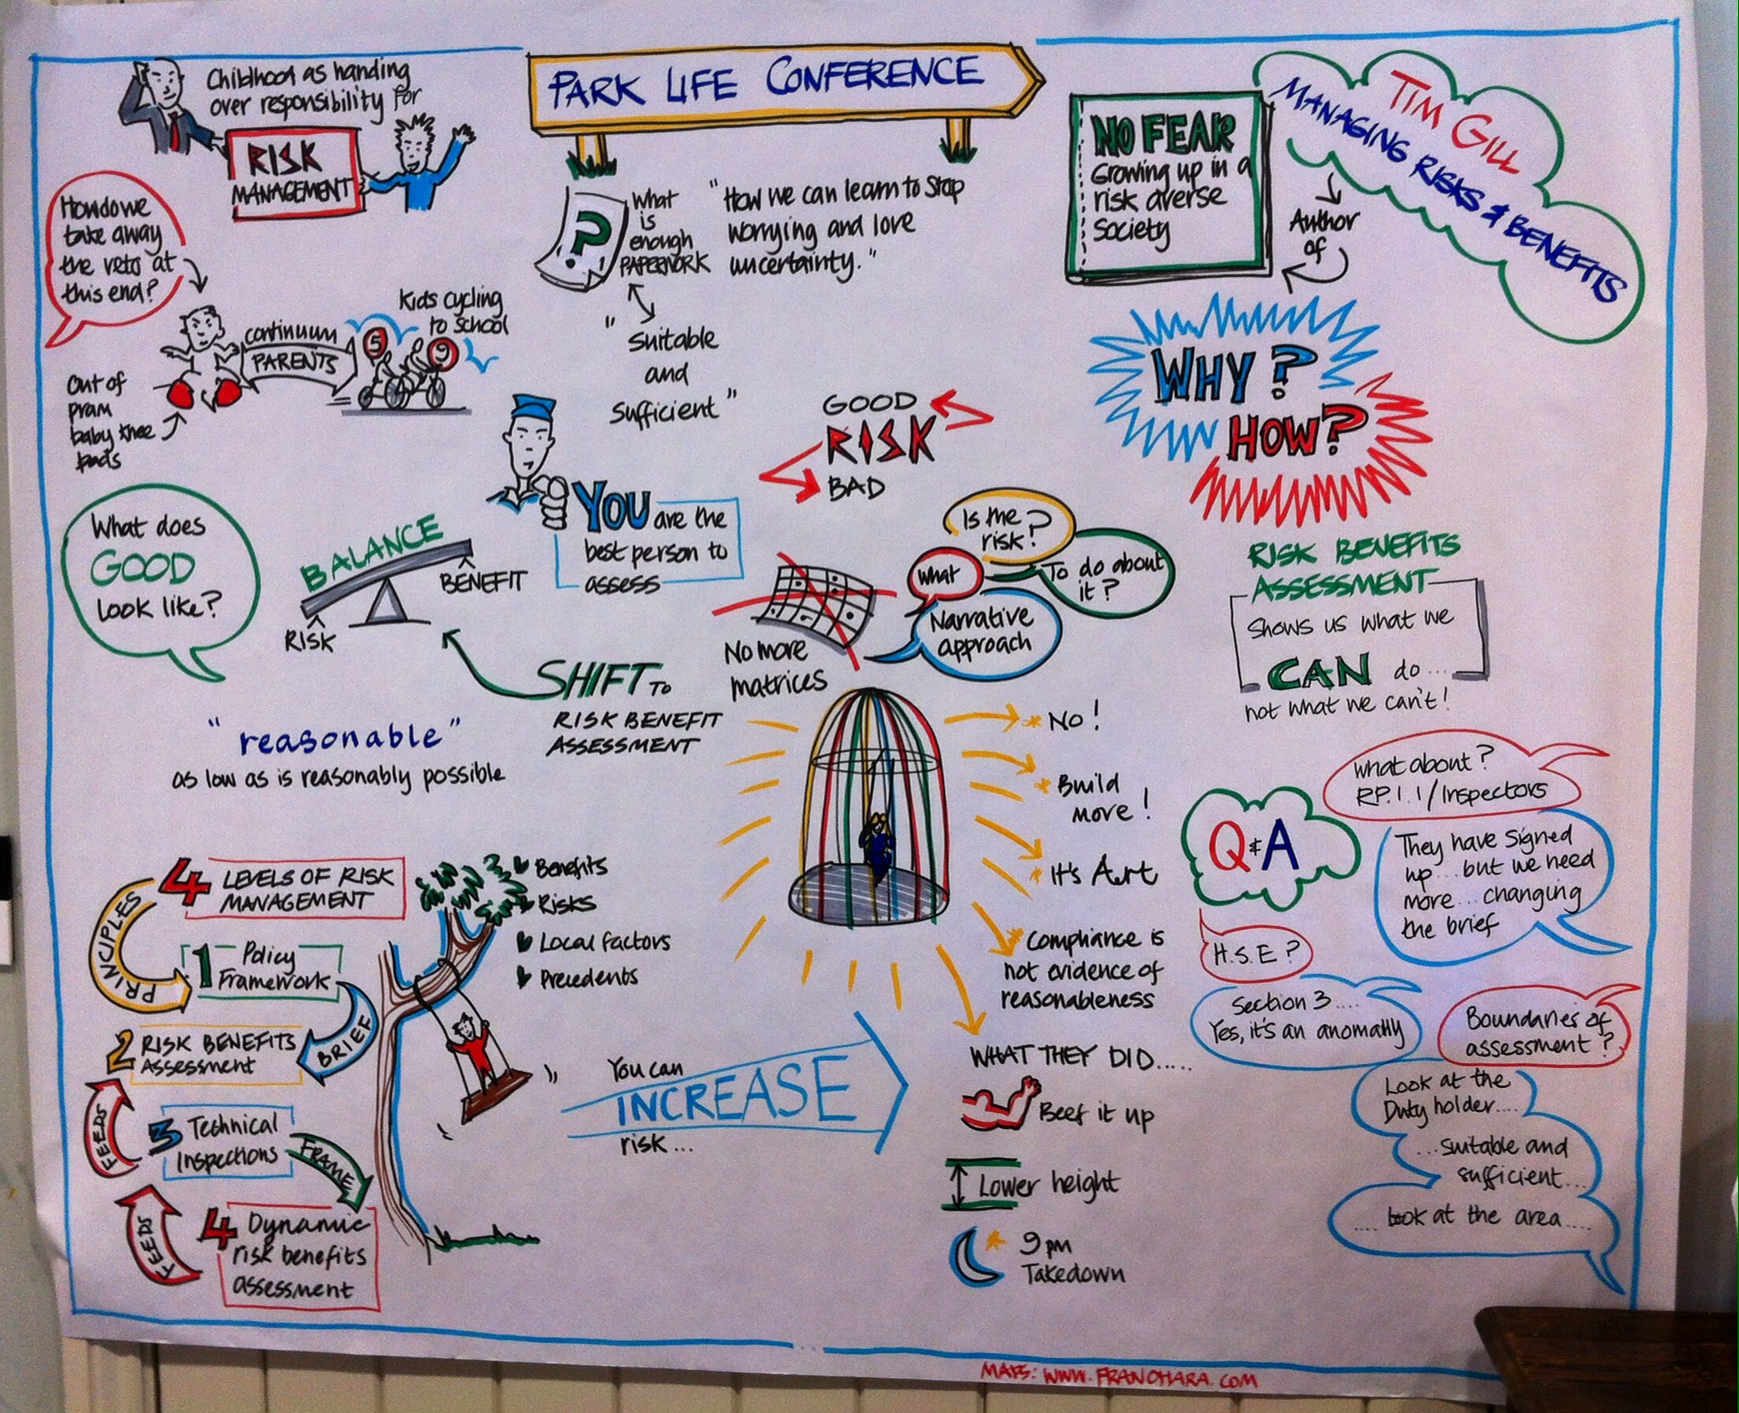 PARK LIFE CONFERENCE
Childhood as handing
over responsibility for
RISK
MANAGEMENT
How do we
take away
the veto at
this end?
continuum
PARENTS
Kids cycling
to school
5
9
Out of
pram
baby knee
pads
?
What
is
enough
PAPERWORK
"How we can learn to stop
worrying and love
uncertainty."
"Suitable
and
sufficient"
NO FEAR
Growing up in a
risk averse
society
Author
of
TIM GILL
MANAGING RISKS & BENEFITS
WHY?
HOW?
GOOD
RISK
BAD
YOU are the
best person to
assess
What does
GOOD
look like?
BALANCE
BENEFIT
RISK
SHIFT TO
RISK BENEFIT
ASSESSMENT
No more
matrices
Is the
risk?
What
To do about
it?
Narrative
approach
RISK BENEFITS
ASSESSMENT
Shows us what we
CAN do ....
not what we can't!
"reasonable"
as low as is reasonably possible
No!
Build
more!
It's Art
Compliance is
not evidence of
reasonableness
WHAT THEY DID.....
Beef it up
Lower height
9pm
Takedown
Q & A
What about?
RP.1.1/Inspectors
They have signed
up... but we need
more... changing
the brief
H.S.E?
Section 3....
Yes, it's an anomally
Boundaries of
assessment?
Look at the
Duty holder....
...suitable and
sufficient...
....look at the area....
4 LEVELS OF RISK
MANAGEMENT
PRINCIPLES
1 Policy
Framework
BRIEF
2 RISK BENEFITS
Assessment
FEEDS
3 Technical
Inspections
FRAME
FEEDS
4 Dynamic
risk benefits
assessment
Benefits
Risks
Local factors
Precedents
You can
INCREASE
risk...
MAPS: WWW.FRANOHARA.COM